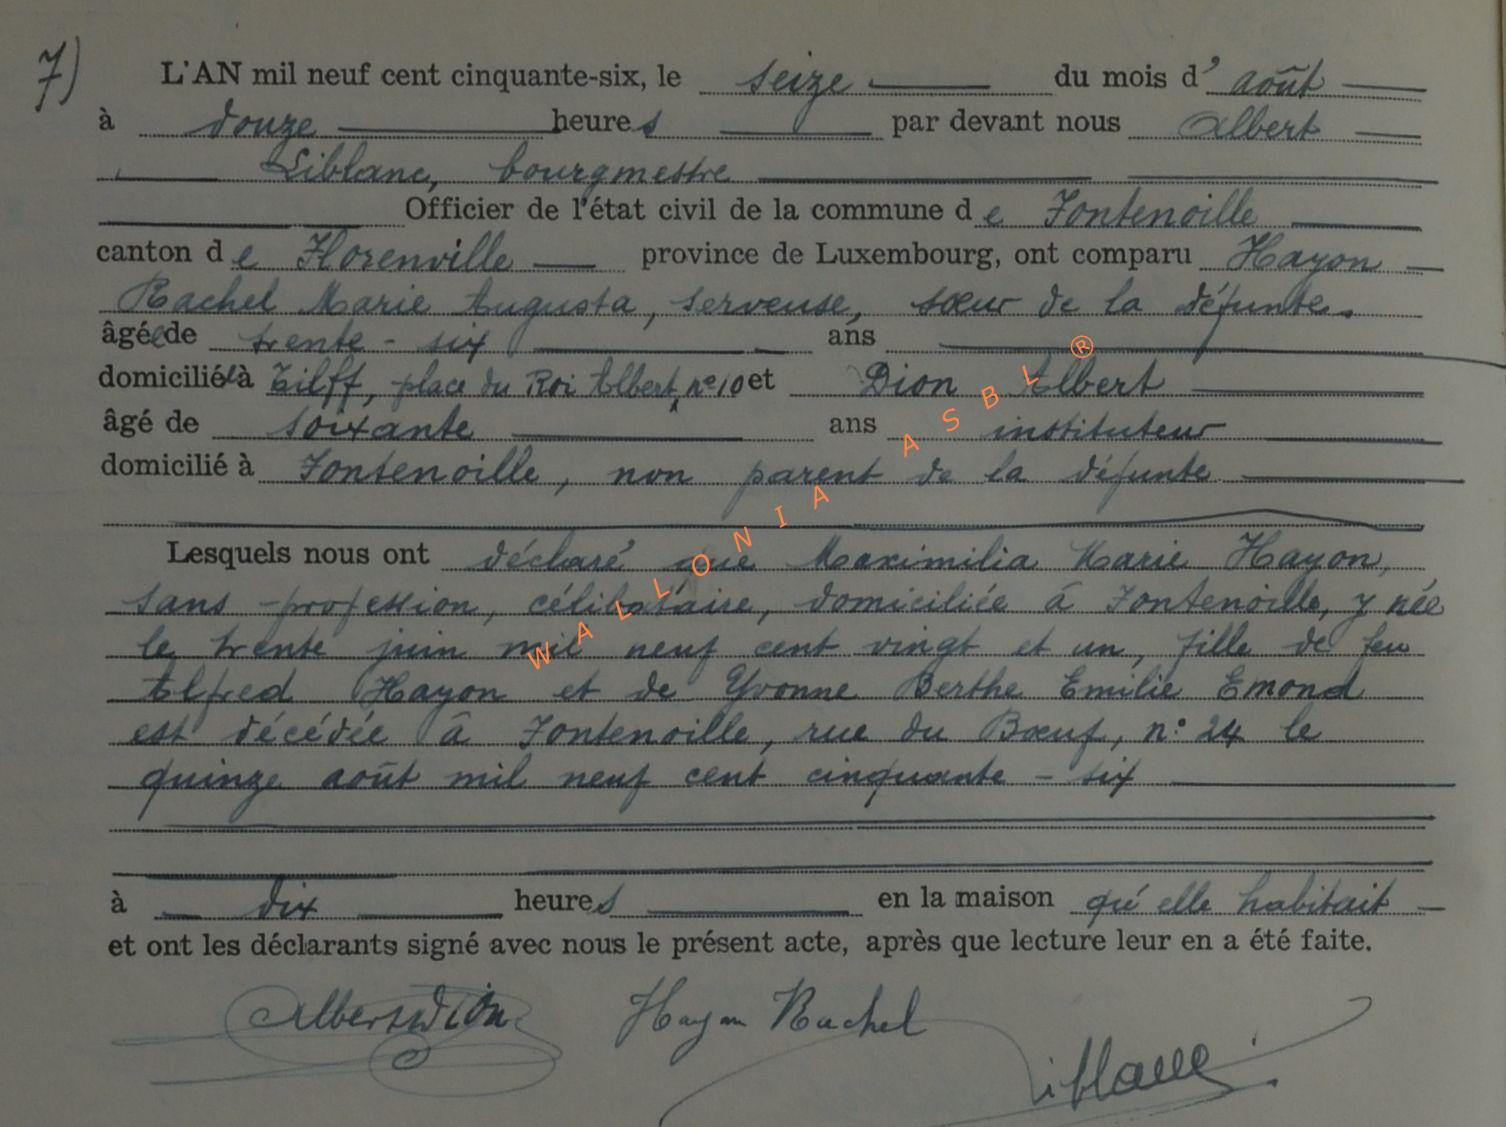 7) L'AN mil neuf cent cinquante-six, le seize du mois d'août
à douze heures par devant nous Albert
Liblanc, bourgmestre
Officier de l'état civil de la commune de Fontenoille
canton de Florenville province de Luxembourg, ont comparu Hayon
Rachel Marie Augusta, serveuse, sœur de la défunte.
âgée de trente-six ans
domiciliée à Tilff, place du Roi Albert, n° 10 et Dion Albert
âgé de soixante ans instituteur
domicilié à Fontenoille, non parent de la défunte
Lesquels nous ont déclaré que Maximilia Marie Hayon,
sans profession, célibataire, domiciliée à Fontenoille, y née
le trente juin mil neuf cent vingt et un, fille de feu
Alfred Hayon et de Yvonne Berthe Emilie Emond
est décédée à Fontenoille, rue du Bœuf, n° 24 le
quinze août mil neuf cent cinquante-six
à dix heures en la maison qu'elle habitait
et ont les déclarants signé avec nous le présent acte, après que lecture leur en a été faite.
Albert Dion Hayon Rachel
Liblanc
WALLONIA ASBL ®